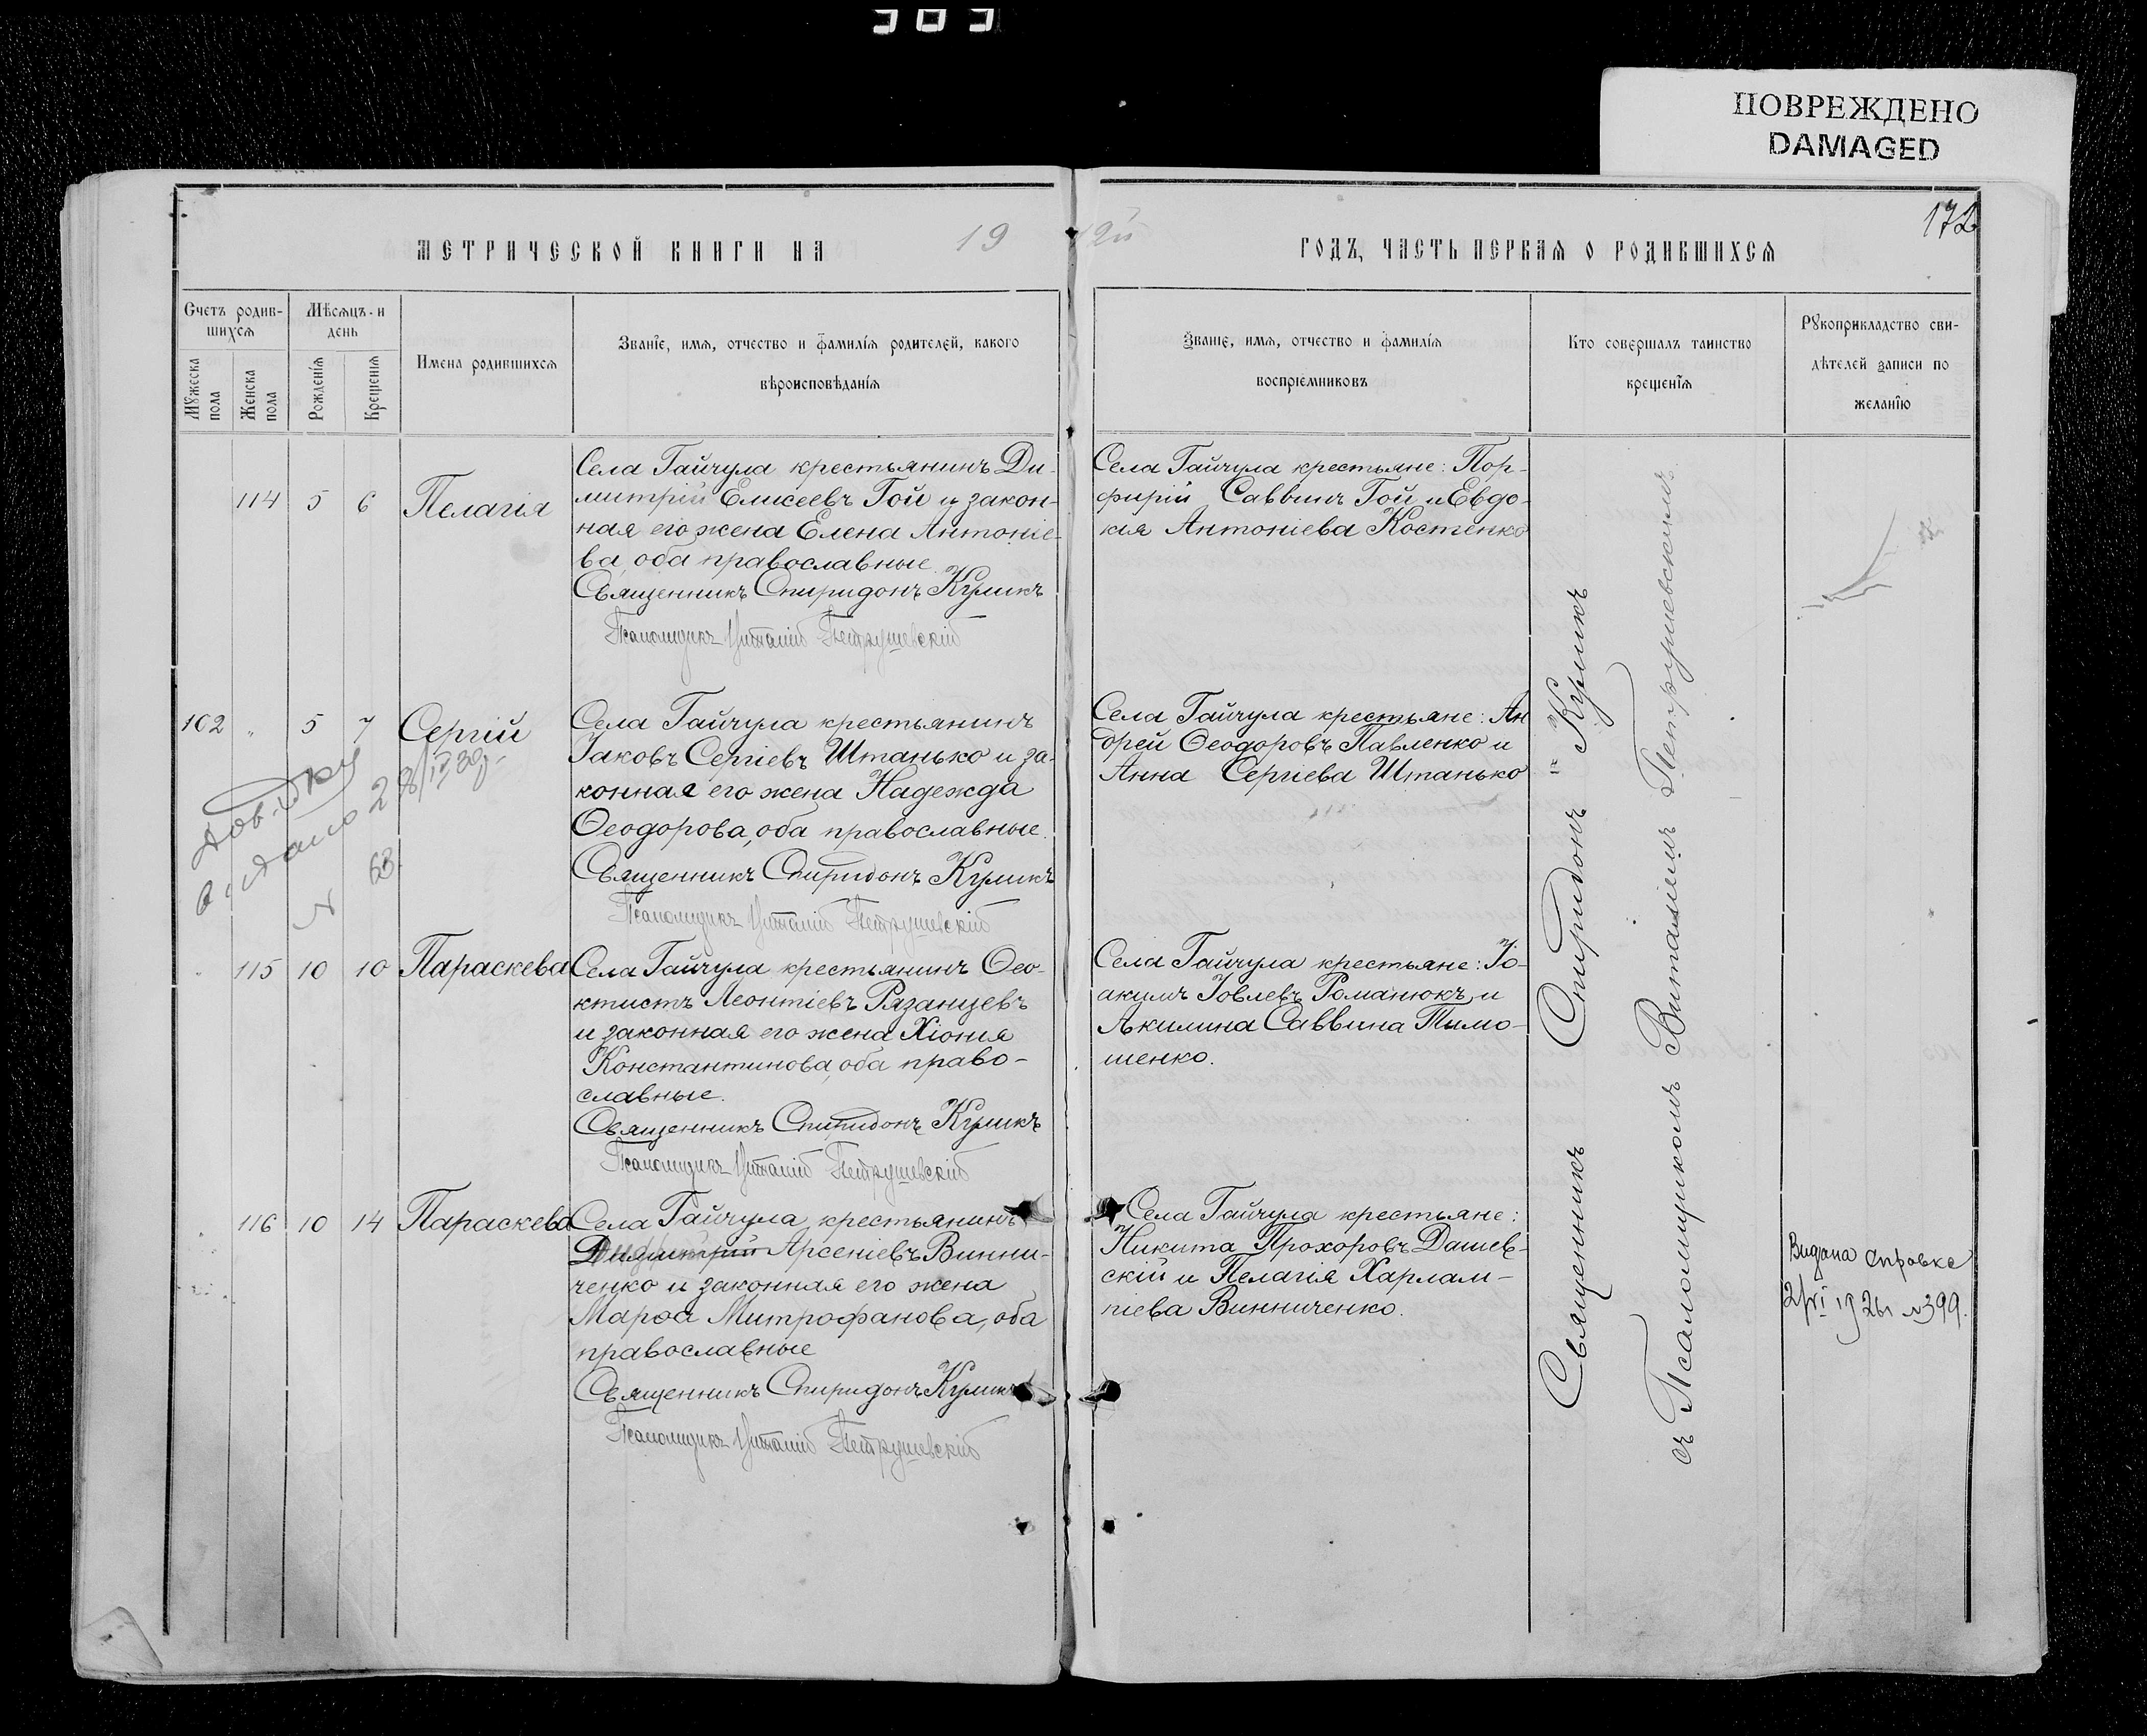 ПОВРЕЖДЕНО
DAMAGED
172
МЕТРИЧЕСКОЙ КНИГИ НА 19
12й ГОДЪ, ЧАСТЬ ПЕРВАЯ О РОДИВШИХСЯ
Счетъ родив-
шихся
Мѣсяцъ и
день
Мужеска
пола
Женска
пола
Рожденія
Крещенія
Имена родившихся
Званіе, имя, отчество и фамилія родителей, какого
вѣроисповѣданія
Званіе, имя, отчество и фамилія
воспріемниковъ
Кто совершалъ таинство
крещенія
Рукоприкладство сви-
дѣтелей записи по
желанію
114 5 6 Пелагія
Села Гайчула крестьянинъ Ди-
митрій Елисеевъ Гой и закон-
ная его жена Елена Антоніе-
ва, оба православные
Священникъ Спиридонъ Куликъ
Псаломщикъ Виталій Петрушевскій
Села Гайчула крестьяне: Пор-
фирій Саввинъ Гой и Евдо-
кія Антоніева Костенко
102 " 5 7 Сергій
Села Гайчула крестьянинъ
Іаковъ Сергіевъ Штанько и за-
конная его жена Надежда
Ѳеодорова, оба православные.
Священникъ Спиридонъ Куликъ
Псаломщикъ Виталій Петрушевскій
Села Гайчула крестьяне: Ан
дрей Ѳеодоровъ Павленко и
Анна Сергіева Штанько
Довідку
видано 28/IV 30р.
N 63.
115 10 10 Параскева
Села Гайчула крестьянинъ Ѳео-
ктистъ Леонтіевъ Рязанцевъ
и законная его жена Хіонія
Константинова, оба право-
славные.
Священникъ Спиридонъ Куликъ
Псаломщикъ Виталій Петрушевскій
Села Гайчула крестьяне: Іо-
акимъ Іовлевъ Романюкъ и
Акилина Саввина Тимо-
шенко.
116 10 14 Параскева
Села Гайчула крестьянинъ
Арсеніевъ Винни-
ченко и законная его жена
Марѳа Митрофанова, оба
православные
Священникъ Спиридонъ Куликъ
Псаломщикъ Виталій Петрушевскій
Села Гайчула крестьяне:
Никита Прохоровъ Дашев-
скій и Пелагія Харлам-
піева Винниченко.
Священникъ Спиридонъ Куликъ
съ Псаломщикомъ Виталіемъ Петрушевскимъ
Видана справка
2/VI 1926г №399.